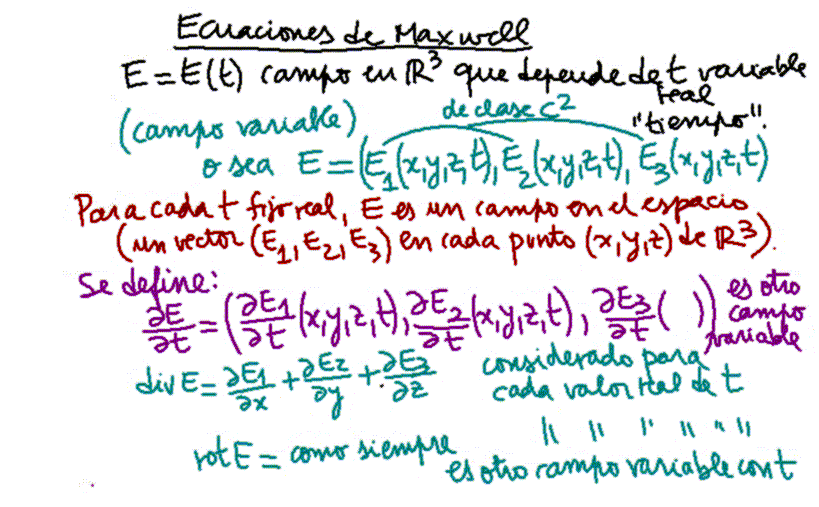 Ecuaciones de Maxwell
E = E(t) campo en ℝ³ que depende de t variable
real
"tiempo".
(campo variable)
de clase C²
o sea E = (E₁(x,y,z,t), E₂(x,y,z,t), E₃(x,y,z,t)
Para cada t fijo real, E es un campo en el espacio
(un vector (E₁, E₂, E₃) en cada punto (x,y,z) de ℝ³).
Se define:
∂E/∂t = (∂E₁/∂t (x,y,z,t), ∂E₂/∂t (x,y,z,t), ∂E₃/∂t ( )) es otro
campo
variable
div E = ∂E₁/∂x + ∂E₂/∂y + ∂E₃/∂z considerado para
cada valor real de t
" " " " " "
rot E = como siempre
es otro campo variable con t